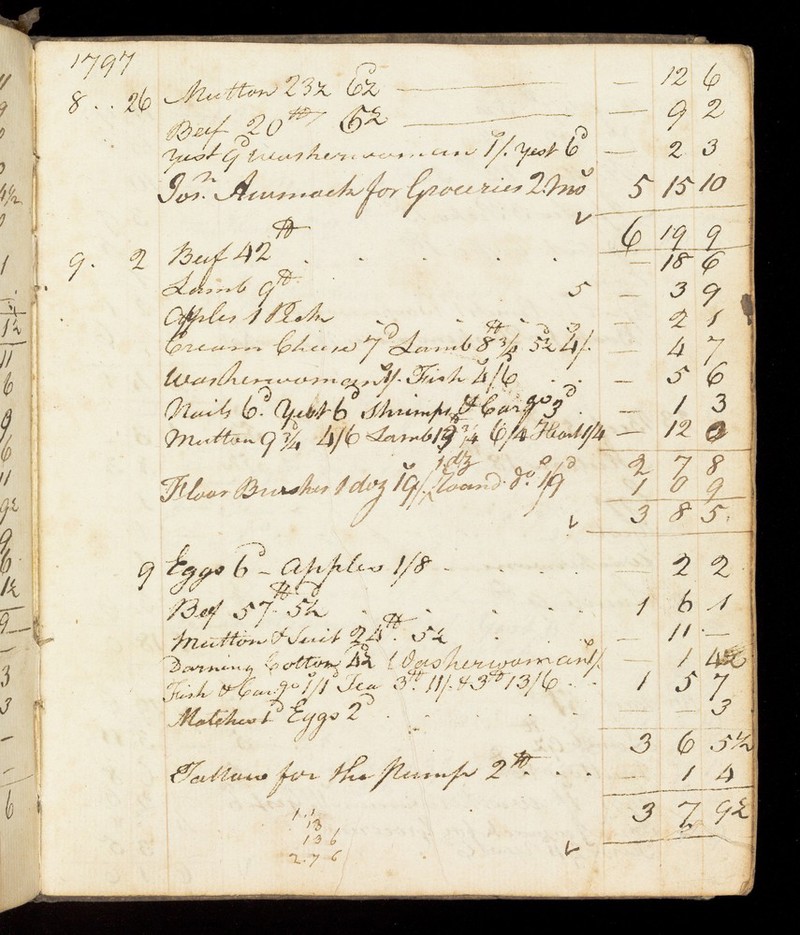 1797
8 .. 26 Mutton 23½ 6½ — 12 6
Beef 20 lb 5½ — 9 2
Yest 9d Washerwoman 1/. Yest 6d — 2 3
Jos. for Groceries 2 Mo 5 15 10
6 19 9
9. 2 Beef 42 lb . . . . . — 18 6
Lamb 9 lb 5 — 3 9
Apples 1 Peck — 2 1
Cream Cheese 7d Lamb 8¾ lb 5½ 4/. — 4 7
Washerwoman 1/. Fish 4/6 — 5 6
Nails 6d. Yest 6d Shrimps & Carge 3d — 1 3
Mutton 9¾ 4/6 Lamb 6/4 1/4 — 12 0
2 7 8
1 dz
Floor Brushes 1 doz 19/. do. 1/9d 1 0 9
3 8 5.
9 Eggs 6d — Apples 1/8 — 2 2
Beef 57 lb. 5½ 1 6 1
Mutton & Suit 24 lb. 5½ — 11 —
Darning Cotton 4½ Washerwoman 1/. — 1 4½
Fish & Carge 1/1d Tea 3 lb 11/. & 3 lb 13/6 1 5 7
Matches 1d Eggs 2d — — 3
3 6 5½
Tallow for the Pump 2 lb. . . . — 1 4
3 7 9½
1.1
13
13 6
2.7 6